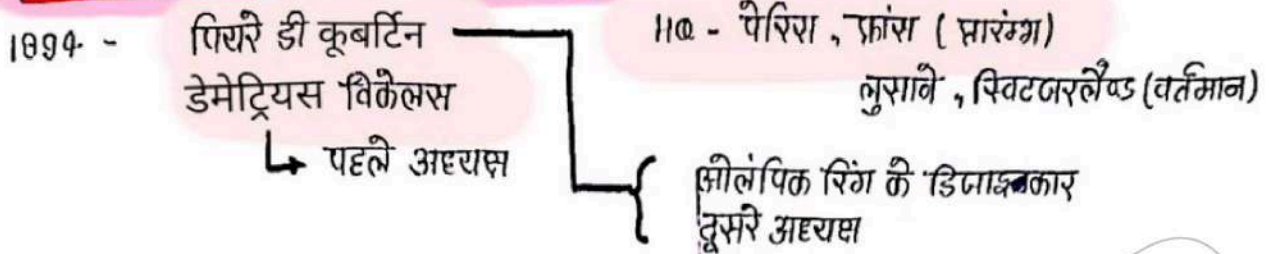 1894 - पियरे डी कूबर्टिन
डेमेट्रियस विकेलस
↳ पहले अध्यक्ष
HQ - पेरिस, फ्रांस (प्रारंम्भ)
लुसाने, स्विटजरलैण्ड (वर्तमान)
ओलंपिक रिंग के डिजाइनकार
दूसरे अध्यक्ष